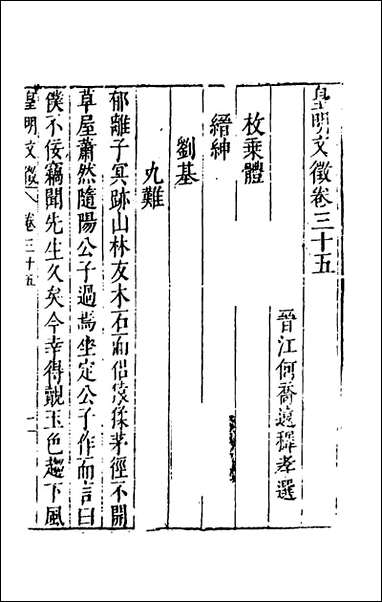 皇明文徵卷三十五
晉江何喬遠穉孝選
枚乘體
縉紳
劉基
九難
郁離子冥跡山林友木石而侶猨猱茅徑不開
草屋蕭然隨陽公子過焉坐定公子作而言曰
僕不佞竊聞先生久矣今幸得覩玉色趨下風
皇明文徵 卷三十五 一